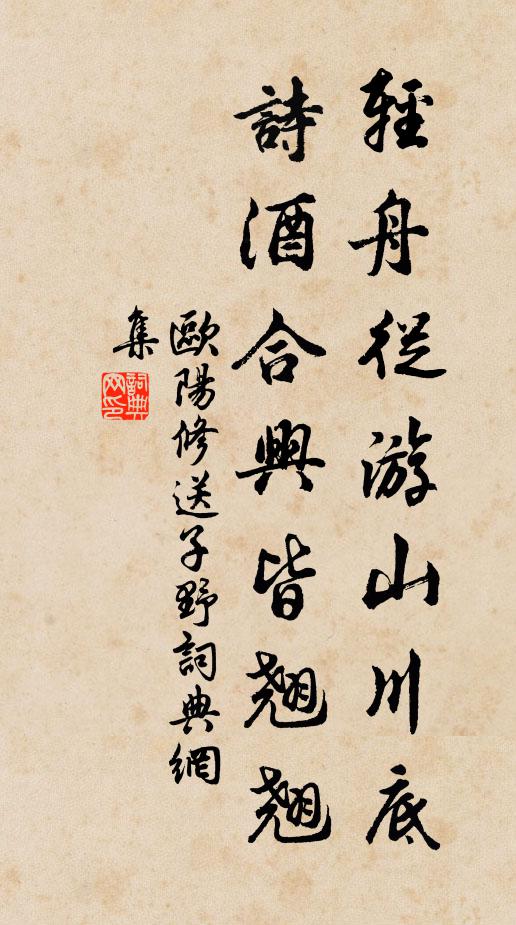 輕舟從游山川底
詩酒合興皆翹翹
歐陽修送子野詞典網
集
詞典网印